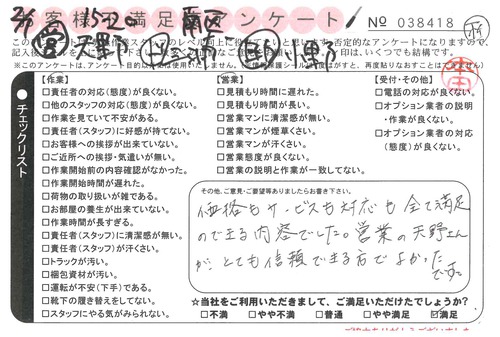 お客様ご満足度アンケート!
№ 038418
2/6 15-20 南区
営 天野
※このアンケートは、アンケート目的以外は使用いたしません。
チェックリスト
【作業】
□責任者の対応(態度)が良くない。
□他のスタッフの対応(態度)が良くない。
□作業を見ていて不安がある。
□責任者(スタッフ)に好感が持てない。
□お客様への挨拶が出来ていない。
□ご近所への挨拶・気遣いが無い。
□作業開始前の内容確認がなかった。
□作業開始時間が遅れた。
□荷物の取り扱いが雑である。
□お部屋の養生が出来ていない。
□作業時間が長すぎる。
□責任者(スタッフ)に清潔感が無い。
□責任者(スタッフ)が汗くさい。
□トラックが汚い。
□梱包資材が汚い。
□運転が不安(下手)である。
□靴下の履き替えをしてない。
□スタッフにやる気がみられない。
【営業】
□見積もり時間に遅れた。
□見積もり時間が長い。
□営業マンに清潔感が無い。
□営業マンが煙草くさい。
□営業マンが汗くさい。
□営業態度が良くない。
□営業の説明と作業が一致してない。
【受付・その他】
□電話の対応が良くない。
□オプション業者の説明
・作業が良くない。
□オプション業者の対応
(態度)が良くない。
その他、ご意見・ご要望等ありましたらお書き下さい。
価格もサービスも対応も全て満足
のできる内容でした。営業の天野さん
が、とても信頼できる方でよかった
です。
☆当社をご利用いただきまして、ご満足いただけたでしょうか?
□不満 □やや不満 □普通 □やや満足 ☑満足